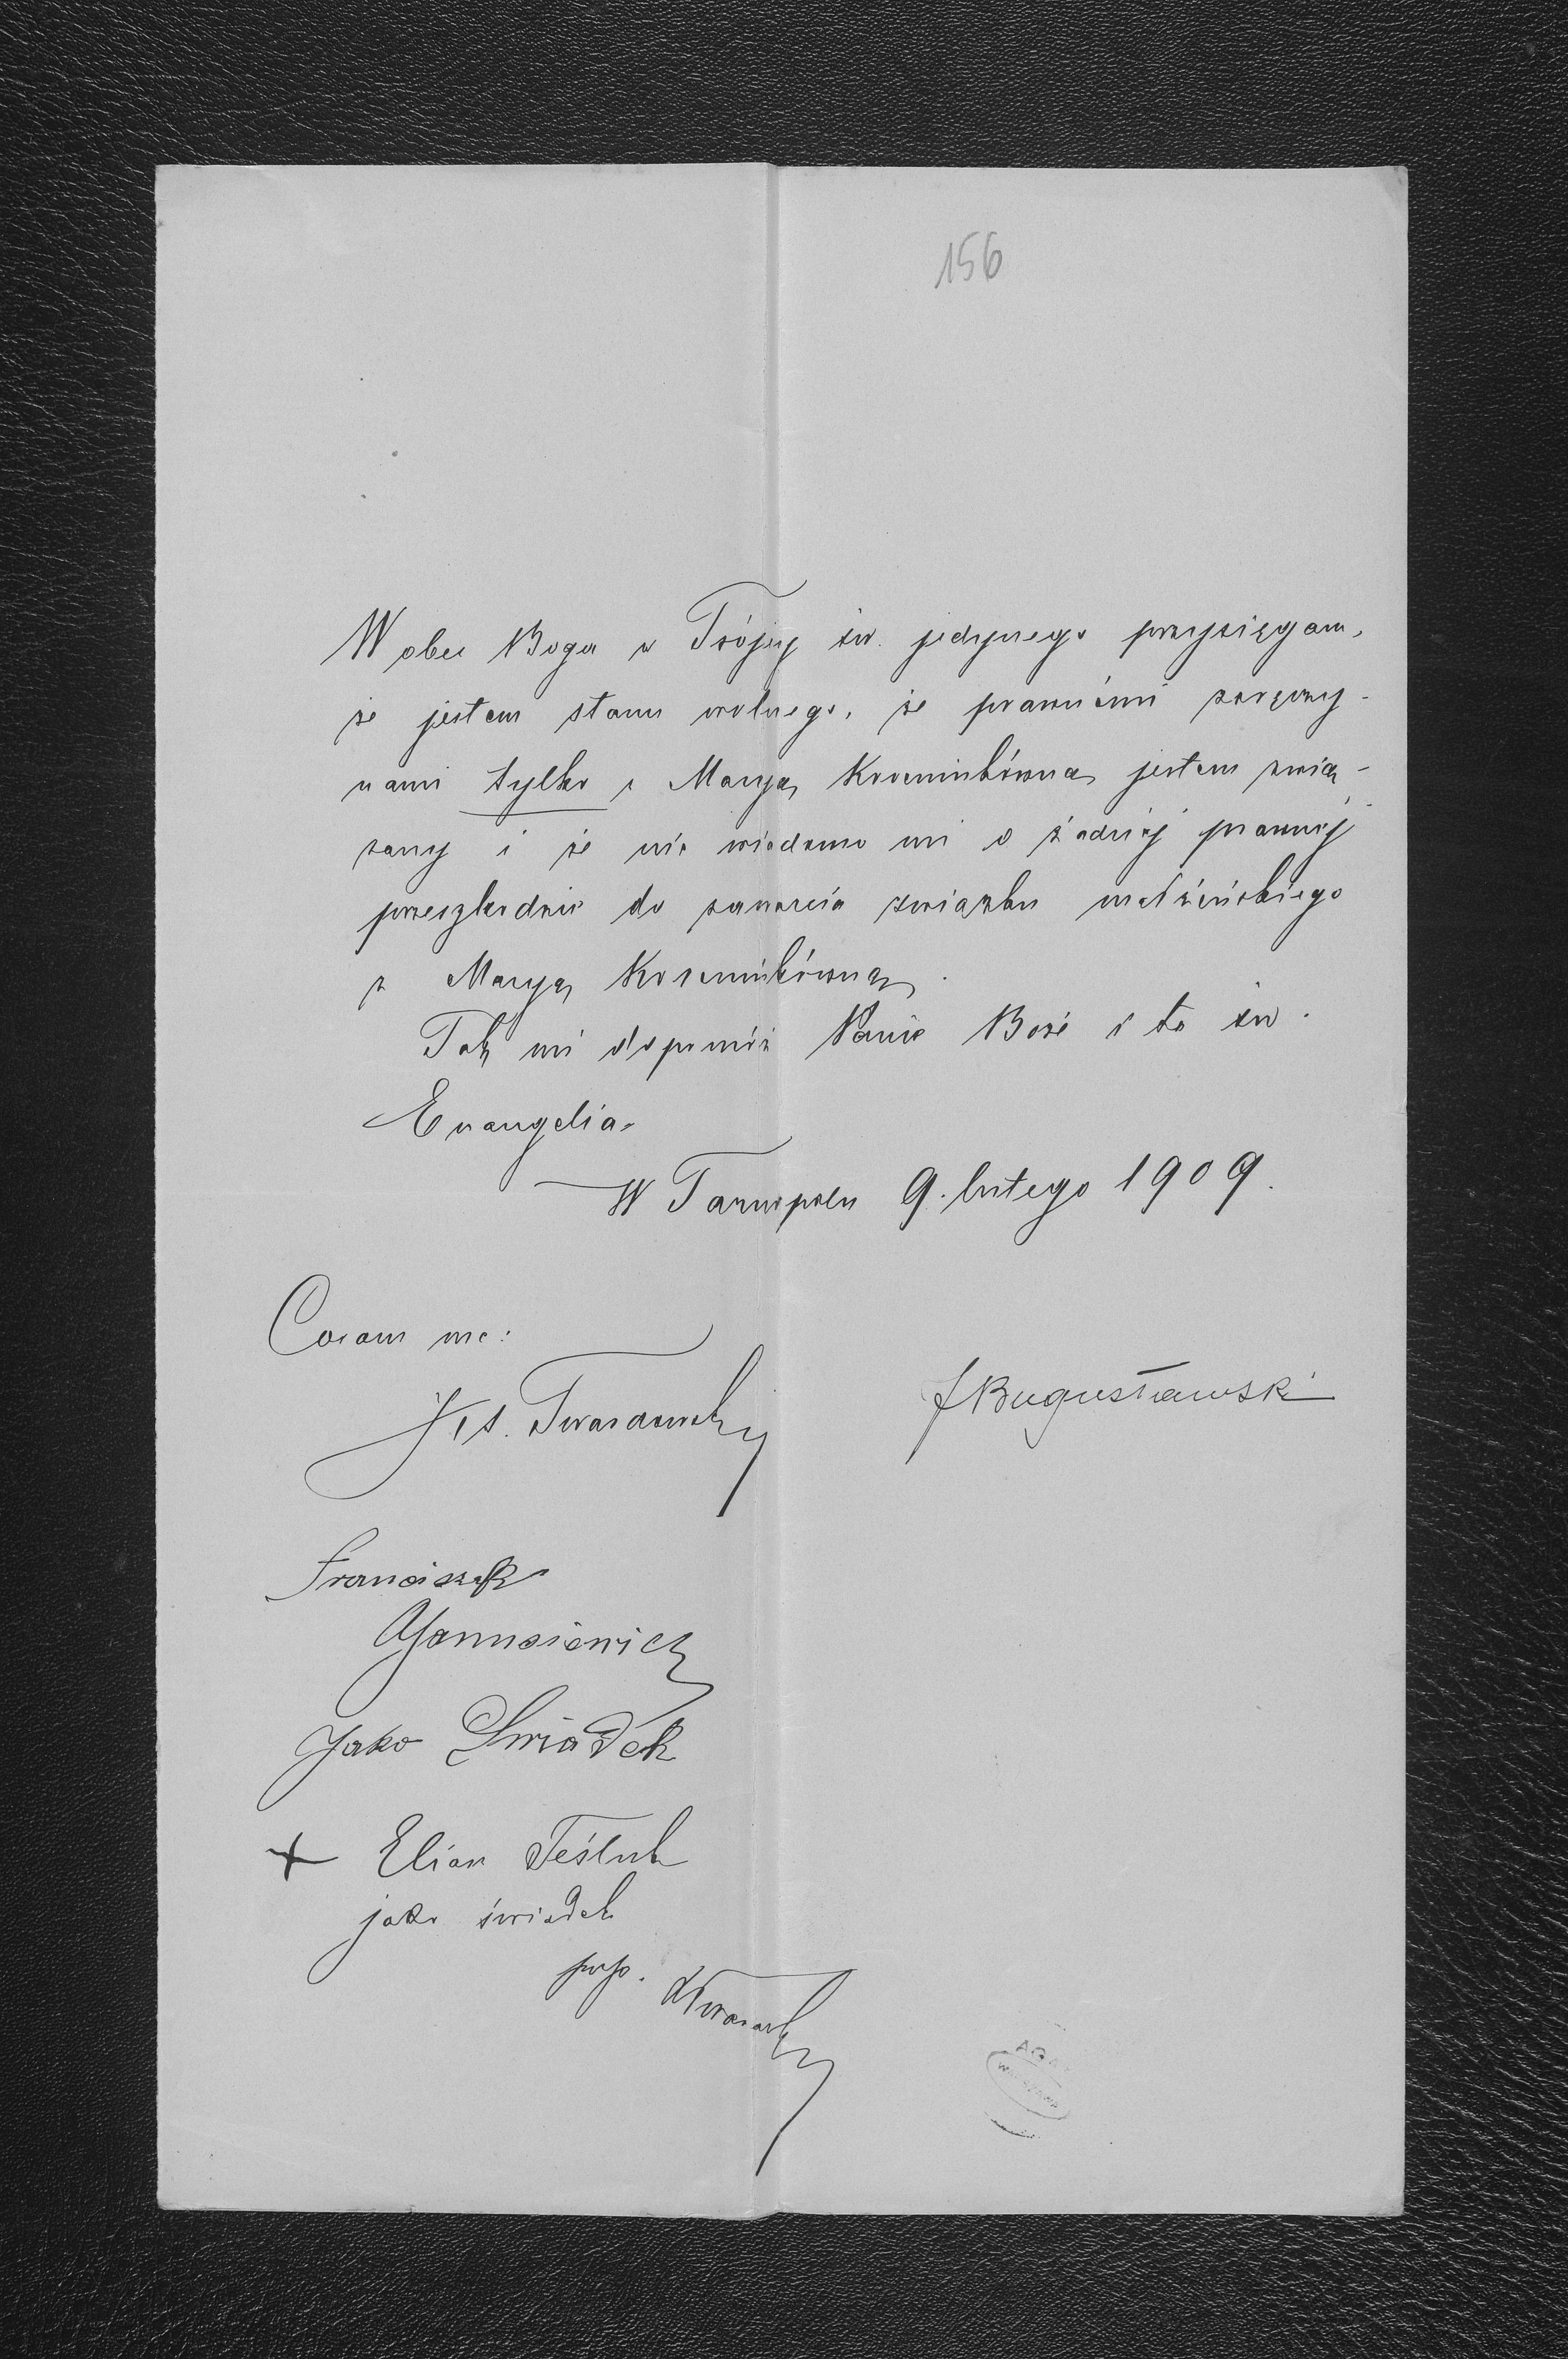 156
W obec Boga w Trójcy św. jedynego przysięgam,
że jestem stanu wolnego, że prawnémi zaręczy-
nami tylko z Maryą Kroeminkówną jestem zwią-
zany i że nie wiadomo mi o żadnéj prawnéj
przeszkodzie do zawarcia związku małżeńskiego
z Maryą
Tak mi dopomóż Panie Boże i ta św.
Ewangelia.
W Tarnopolu 9. lutego 1909.
Coram me:
Twardowski
J Bugusławski
Franciszek
Janusiewicz
Jako Swiadek
+ Elian Teśluk
jako świadek
Twardowski
AGA
WARSZAWA